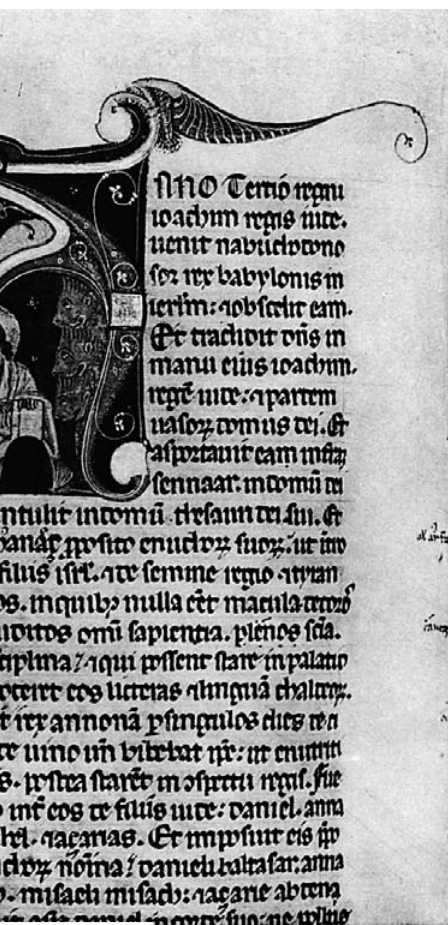 ANO Tertio regni
ioachim regis iude.
uenit nabuchodono
sor rex babylonis in
ierlm: ⁊ obsedit eam.
Et tradidit dns in
manu eius ioachim.
regē iude: ⁊ partem
uasoꝝ domus dei. Et
asportauit eam in terrā
sennaar. in domū dei
ntulit in domū thesauri dei sui. Et
p̄posito eunuchoꝝ suoꝝ. ut int̾o
filiis isrl. ⁊ de semine regio ⁊ tiran
os. in quibꝫ nulla eēt macula decoros
uditos omī sapientia. plenos scīa.
ciplina? ⁊ qui possent stare in palatio
oceret eos litteras ⁊ linguā chaldeoꝝ.
t rex annonā p singulos dies de ci
de uino un bibebat ip̄e: ut enutriti
s. postea starēt in ꝯspectu regis. Fue
o int̾ eos de filiis iude: daniel. anna
hel. ⁊ azarias. Et imposuit eis pp̄o
uchoꝝ noīna? danieli baltasar. anna
misaeli misach: ⁊ azarie abdena